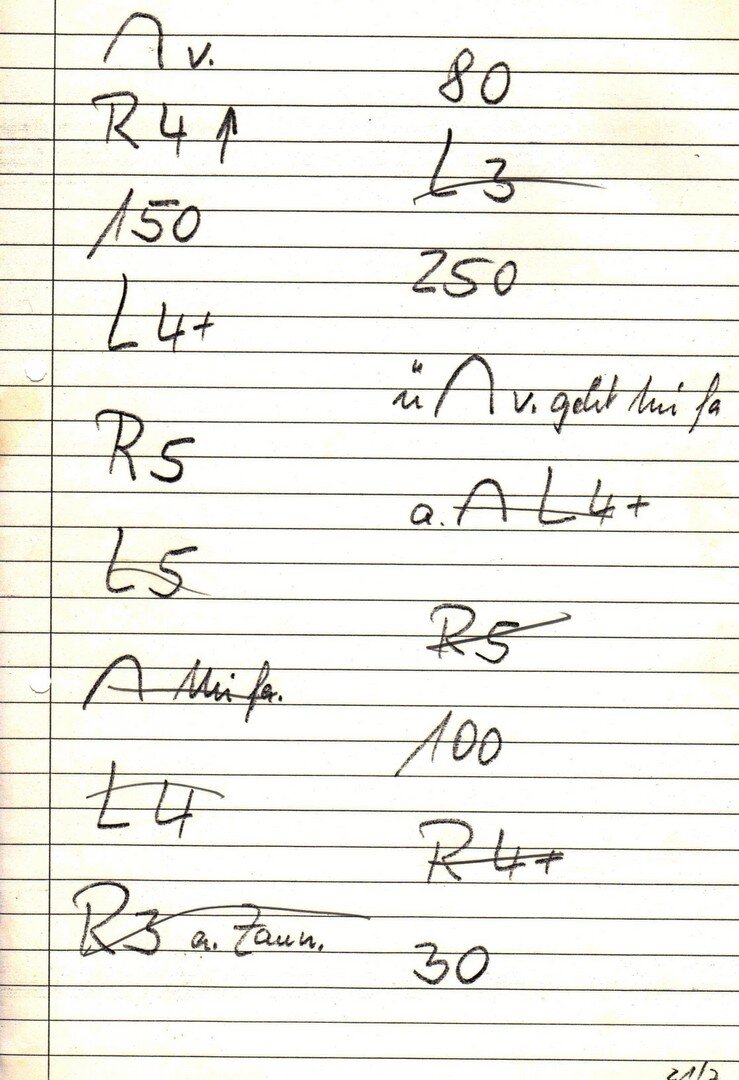 ⋂ v.
R 4 ↑
150
L 4+
R 5
L 5
⋂
L 4
R 3 a. Zaun.
80
L 3
250
ü ⋂ v. geht
a. ⋂ L 4+
R 5
100
R 4+
30